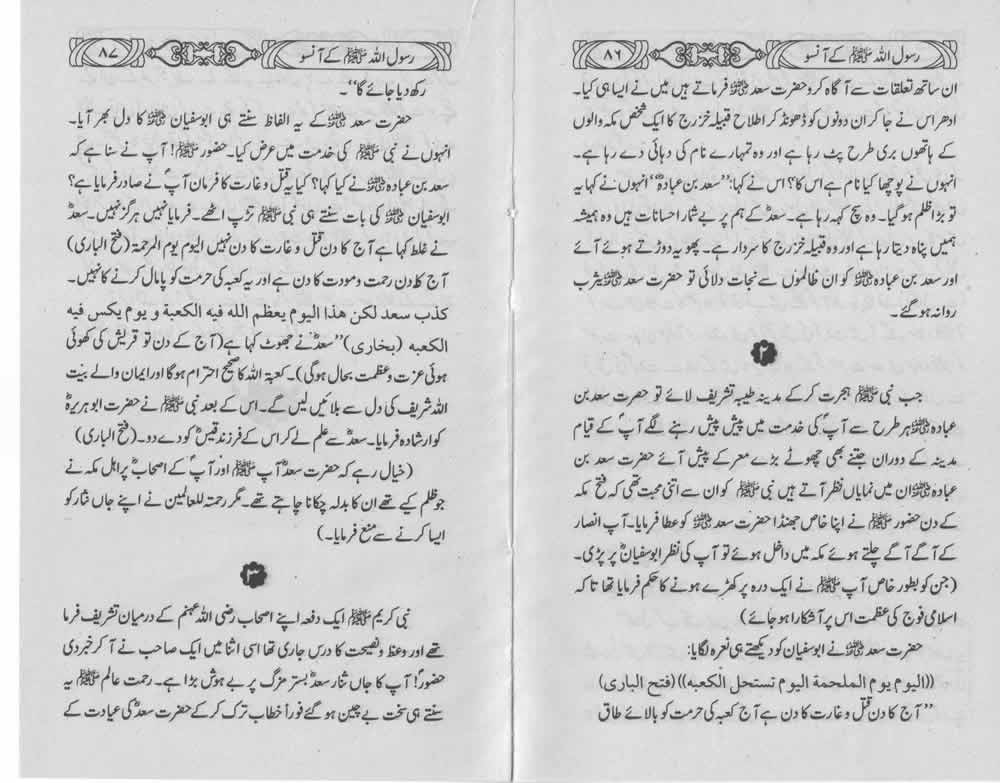 رسول اللہ ﷺ کے آنسو
۸۶
ان ساتھ تعلقات سے آگاہ کرو حضرت سعد رضی اللہ عنہ فرماتے ہیں میں نے ایسا ہی کیا۔
ادھر اس نے جا کر ان دونوں کو ڈھونڈ کر اطلاع قبیلہ خزرج کا ایک شخص مکہ والوں
کے ہاتھوں بری طرح پٹ رہا ہے اور وہ تمہارے نام کی دہائی دے رہا ہے۔
انہوں نے پوچھا کیا نام ہے اس کا؟ اس نے کہا: ”سعد بن عبادہؓ“ انہوں نے کہا یہ
تو بڑا ظلم ہو گیا۔ وہ سچ کہہ رہا ہے۔ سعدؓ کے ہم پر بے شمار احسانات ہیں وہ ہمیشہ
ہمیں پناہ دیتا رہا ہے اور وہ قبیلہ خزرج کا سردار ہے۔ پھو یہ دوڑتے ہوئے آئے
اور سعد بن عبادہ رضی اللہ عنہ کو ان ظالموں سے نجات دلائی تو حضرت سعد رضی اللہ عنہ یثرب
روانہ ہو گئے۔
۲
جب نبی ﷺ ہجرت کر کے مدینہ طیبہ تشریف لائے تو حضرت سعد بن
عبادہ رضی اللہ عنہ ہر طرح سے آپؐ کی خدمت میں پیش پیش رہنے لگے آپؐ کے قیام
مدینہ کے دوران جتنے بھی چھوٹے بڑے معرکے پیش آئے حضرت سعد بن
عبادہ رضی اللہ عنہ ان میں نمایاں نظر آتے ہیں نبی ﷺ کو ان سے اتنی محبت تھی کہ فتح مکہ
کے دن حضور ﷺ نے اپنا خاص جھنڈا حضرت سعد رضی اللہ عنہ کو عطا فرمایا۔ آپ انصار
کے آگے آگے چلتے ہوئے مکہ میں داخل ہوئے تو آپ کی نظر ابوسفیانؓ پر پڑی۔
(جن کو بطور خاص آپ ﷺ نے ایک درہ پر کھڑے ہونے کا حکم فرمایا تھا تاکہ
اسلامی فوج کی عظمت اس پر آشکارا ہو جائے)
حضرت سعدؓ نے ابوسفیان کو دیکھتے ہی نعرہ لگایا:
((اليوم يوم الملحمة اليوم نستحل الكعبه)) (فتح الباری)
”آج کا دن قتل و غارت کا دن ہے آج کعبہ کی حرمت کو بالائے طاق
رسول اللہ ﷺ کے آنسو
۸۷
رکھ دیا جائے گا“۔
حضرت سعد رضی اللہ عنہ کے یہ الفاظ سنتے ہی ابوسفیان رضی اللہ عنہ کا دل بھر آیا۔
انہوں نے نبی ﷺ کی خدمت میں عرض کیا۔ حضور ﷺ! آپ نے سنا ہے کہ
سعد بن عبادہ رضی اللہ عنہ نے کیا کہا؟ کیا یہ قتل و غارت کا فرمان آپؐ نے صادر فرمایا ہے؟
ابوسفیان رضی اللہ عنہ کی بات سنتے ہی نبی ﷺ تڑپ اٹھے۔ فرمایا نہیں ہرگز نہیں۔ سعدؓ
نے غلط کہا ہے آج کا دن قتل و غارت کا دن نہیں الیوم یوم المرحمۃ (فتح الباری)
آج کا دن رحمت و مودت کا دن ہے اور یہ کعبہ کی حرمت کو پامال کرنے کا نہیں۔
كذب سعد لكن هذا اليوم يعظم الله فيه الكعبة و يوم يكس فيه
الكعبه (بخاری)” سعدؓ نے جھوٹ کہا ہے (آج کے دن تو قریش کی کھوئی
ہوئی عزت و عظمت بحال ہوگی)۔ کعبۃ اللہ کا صحیح احترام ہوگا اور ایمان والے بیت
اللہ شریف کی دل سے بلائیں لیں گے۔ اس کے بعد نبی ﷺ نے حضرت ابوہریرہؓ
کو ارشادہ فرمایا۔ سعدؓ سے علم لے کر اس کے فرزند قیسؓ کو دے دو۔ (فتح الباری)
(خیال رہے کہ حضرت سعدؓ آپ ﷺ اور آپؐ کے اصحابؓ پر اہل مکہ نے
جو ظلم کیے تھے ان کا بدلہ چکانا چاہتے تھے۔ مگر رحمتہ للعالمین نے اپنے جاں نثار کو
ایسا کرنے سے منع فرمایا۔)
۳
نبی کریم ﷺ ایک دفعہ اپنے اصحاب رضی اللہ عنہم کے درمیان تشریف فرما
تھے اور وعظ و نصیحت کا درس جاری تھا اسی اثنا میں ایک صاحب نے آ کر خبر دی
حضورؐ! آپ کا جاں نثار سعدؓ بستر مرگ پر بے ہوش پڑا ہے۔ رحمت عالم ﷺ یہ
سنتے ہی سخت بے چین ہو گئے فوراً خطاب ترک کر کے حضرت سعدؓ کی عیادت کے